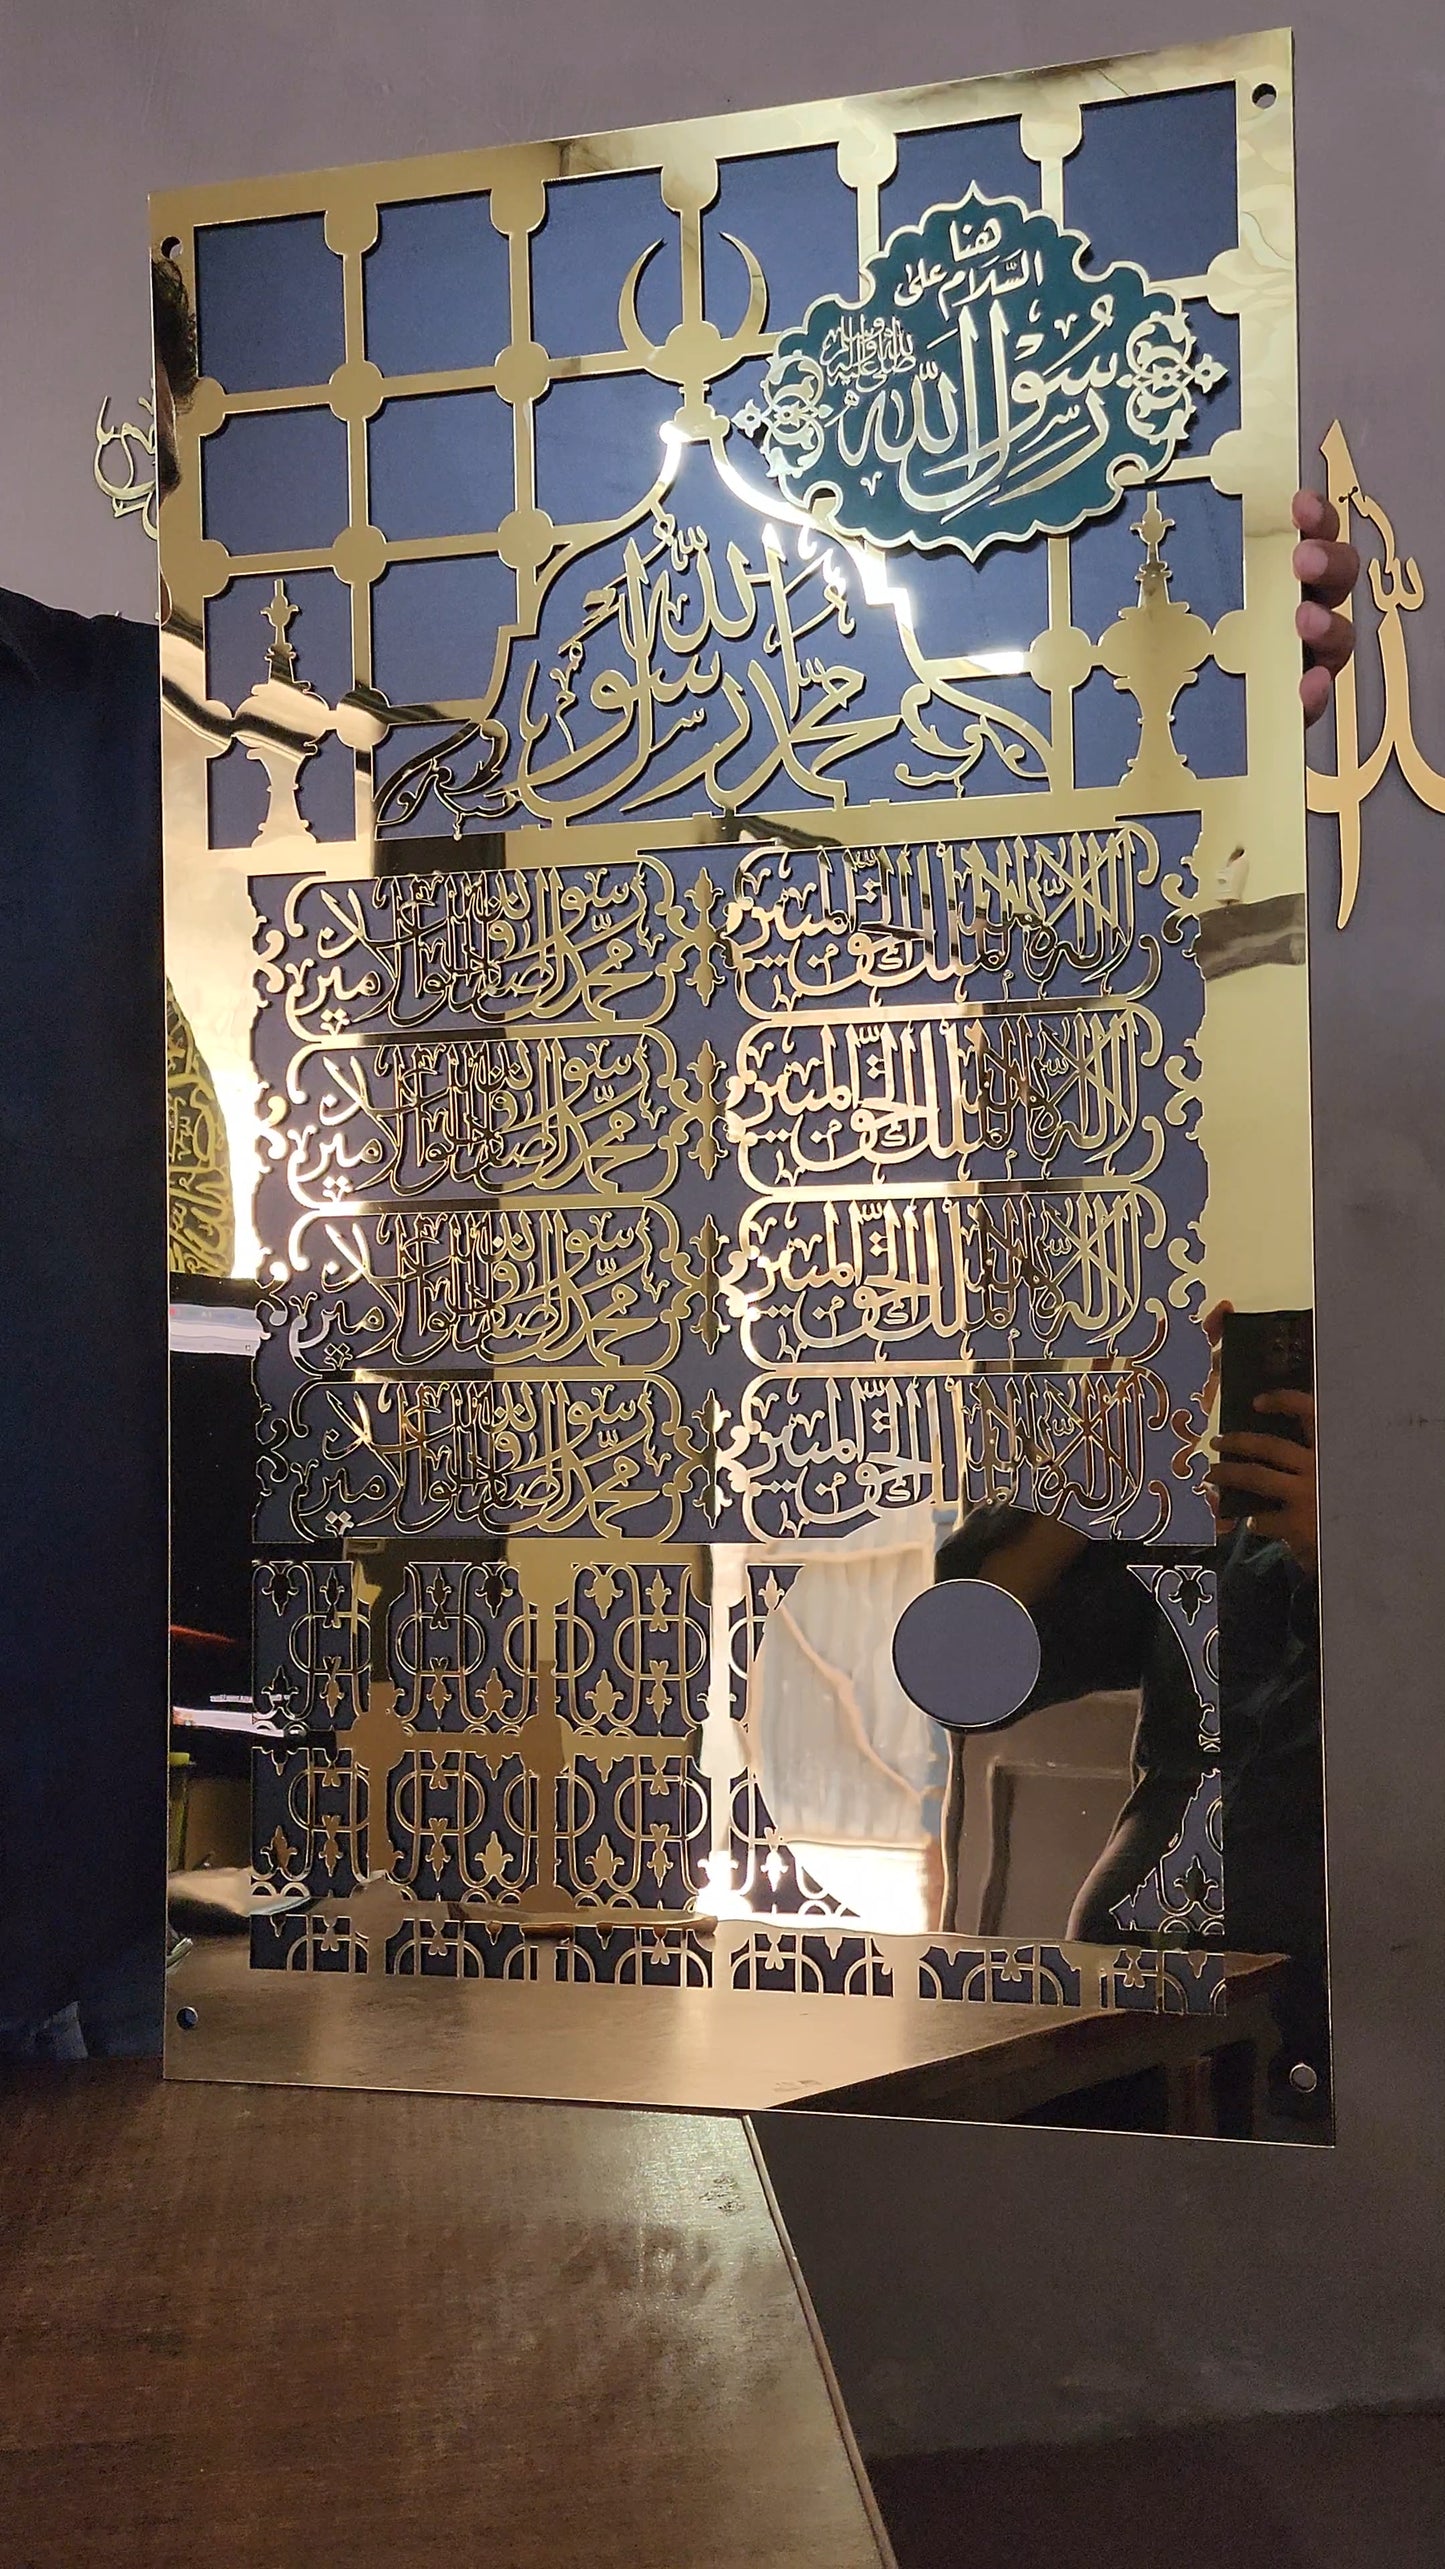 هنا
السَّلَام على
رَسُوْلِ اللهِ
صلى الله عليه وسلم
محمد رسول الله
لا إله إلا الله الملك الحق المبين
محمد رسول الله الصادق الوعد الأمين
لا إله إلا الله الملك الحق المبين
محمد رسول الله الصادق الوعد الأمين
لا إله إلا الله الملك الحق المبين
محمد رسول الله الصادق الوعد الأمين
لا إله إلا الله الملك الحق المبين
محمد رسول الله الصادق الوعد الأمين